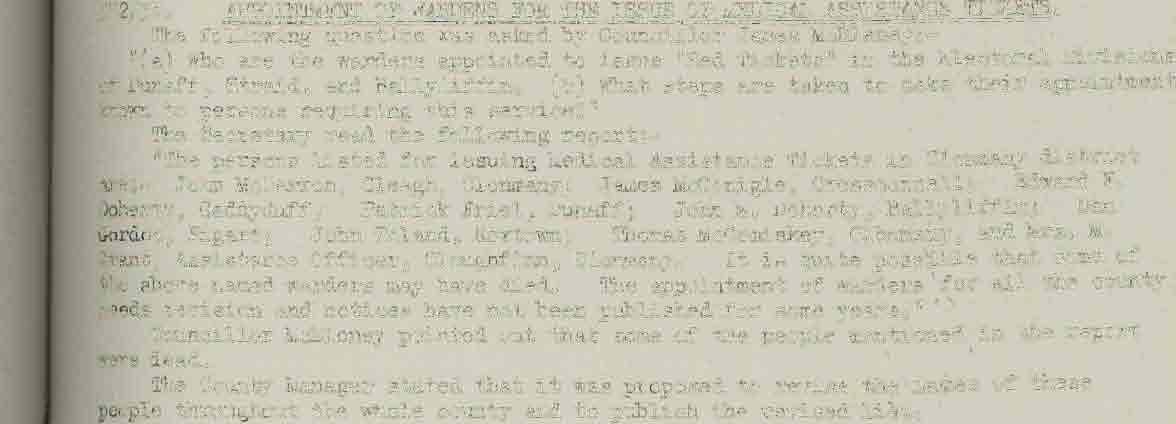 APPOINTMENT OF WARDENS FOR THE ISSUE OF MEDICAL ASSISTANCE TICKETS.
The following question was asked by Councillor James
"(a) Who are the wardens appointed to issue "Red Tickets" in the Electoral Divisions
of Dunaff, Straid, and Ballyliffin. (b) What steps are taken to make their appointment
known to persons requiring this service?"
The Secretary read the following report:-
"The persons listed for issuing Medical Assistance Tickets in Clonmany district
are:- John Cleagh, Clonmany; James McGonigle, Crossconnell; Edward F.
Doherty, Gaddyduff; Patrick Friel, Dunaff; John Doherty, Ballyliffin; Dan
Gordon, John Thomas and Mrs. M.
Evans, Assistance Officer, Clonmany. It is quite possible that some of
the above named wardens may have died. The appointment of wardens for all the county
needs revision and notices have not been published for some years."
Councillor pointed out that some of the people mentioned in the report
were dead.
The County Manager stated that it was proposed to revise the names of these
people throughout the whole county and to publish the revised list.